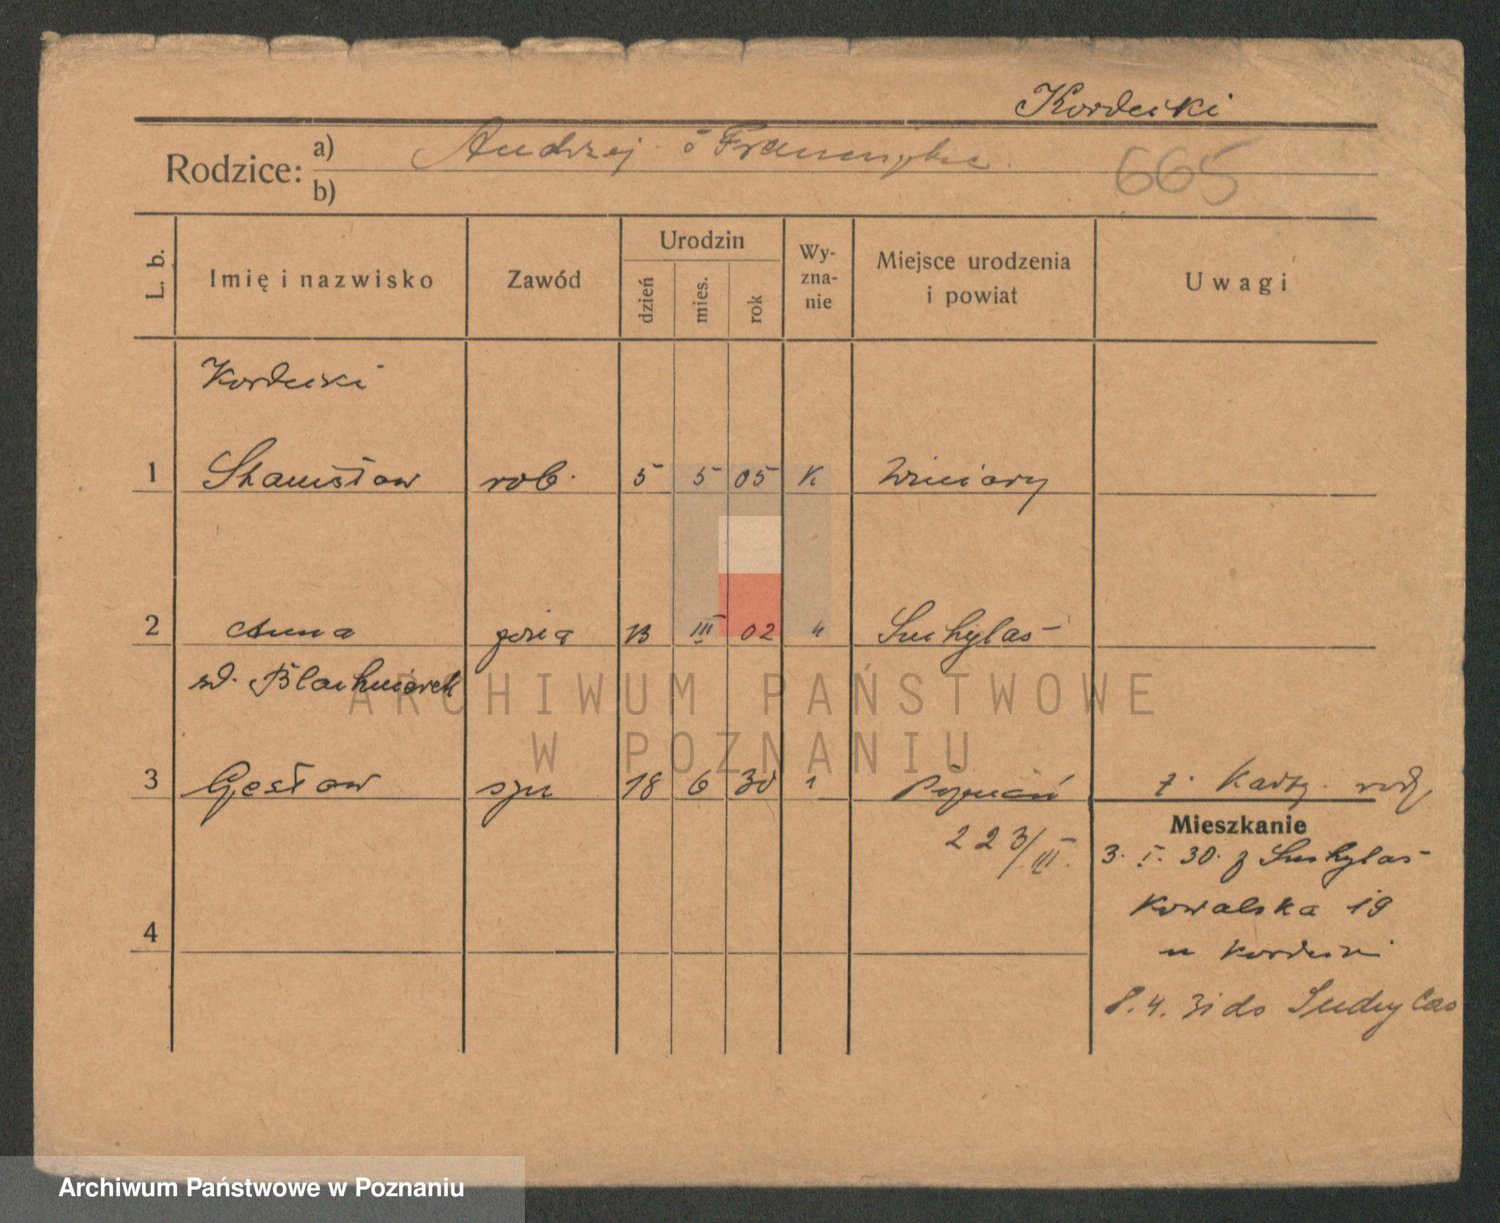 Kordecki
Rodzice: a) Andrzej ō Franciszka
b)
665
L. b. Imię i nazwisko Zawód Urodzin dzień mies. rok Wy-zna-nie Miejsce urodzenia i powiat Uwagi
Kordecki
1 Stanisław rob. 5 5 05 K. Winiary
2 Anna żona 13 III 02 " Suchylas
Blachniarek
3 Czesław syn 18 6 30 Poznań z. Karty rodz.
223/III.
Mieszkanie
3. I. 30. z Suchylas
Kowalska 19
u Kordecki
4
8. 4. 31 do Suchylas
ARCHIWUM PAŃSTWOWE
W POZNANIU
Archiwum Państwowe w Poznaniu